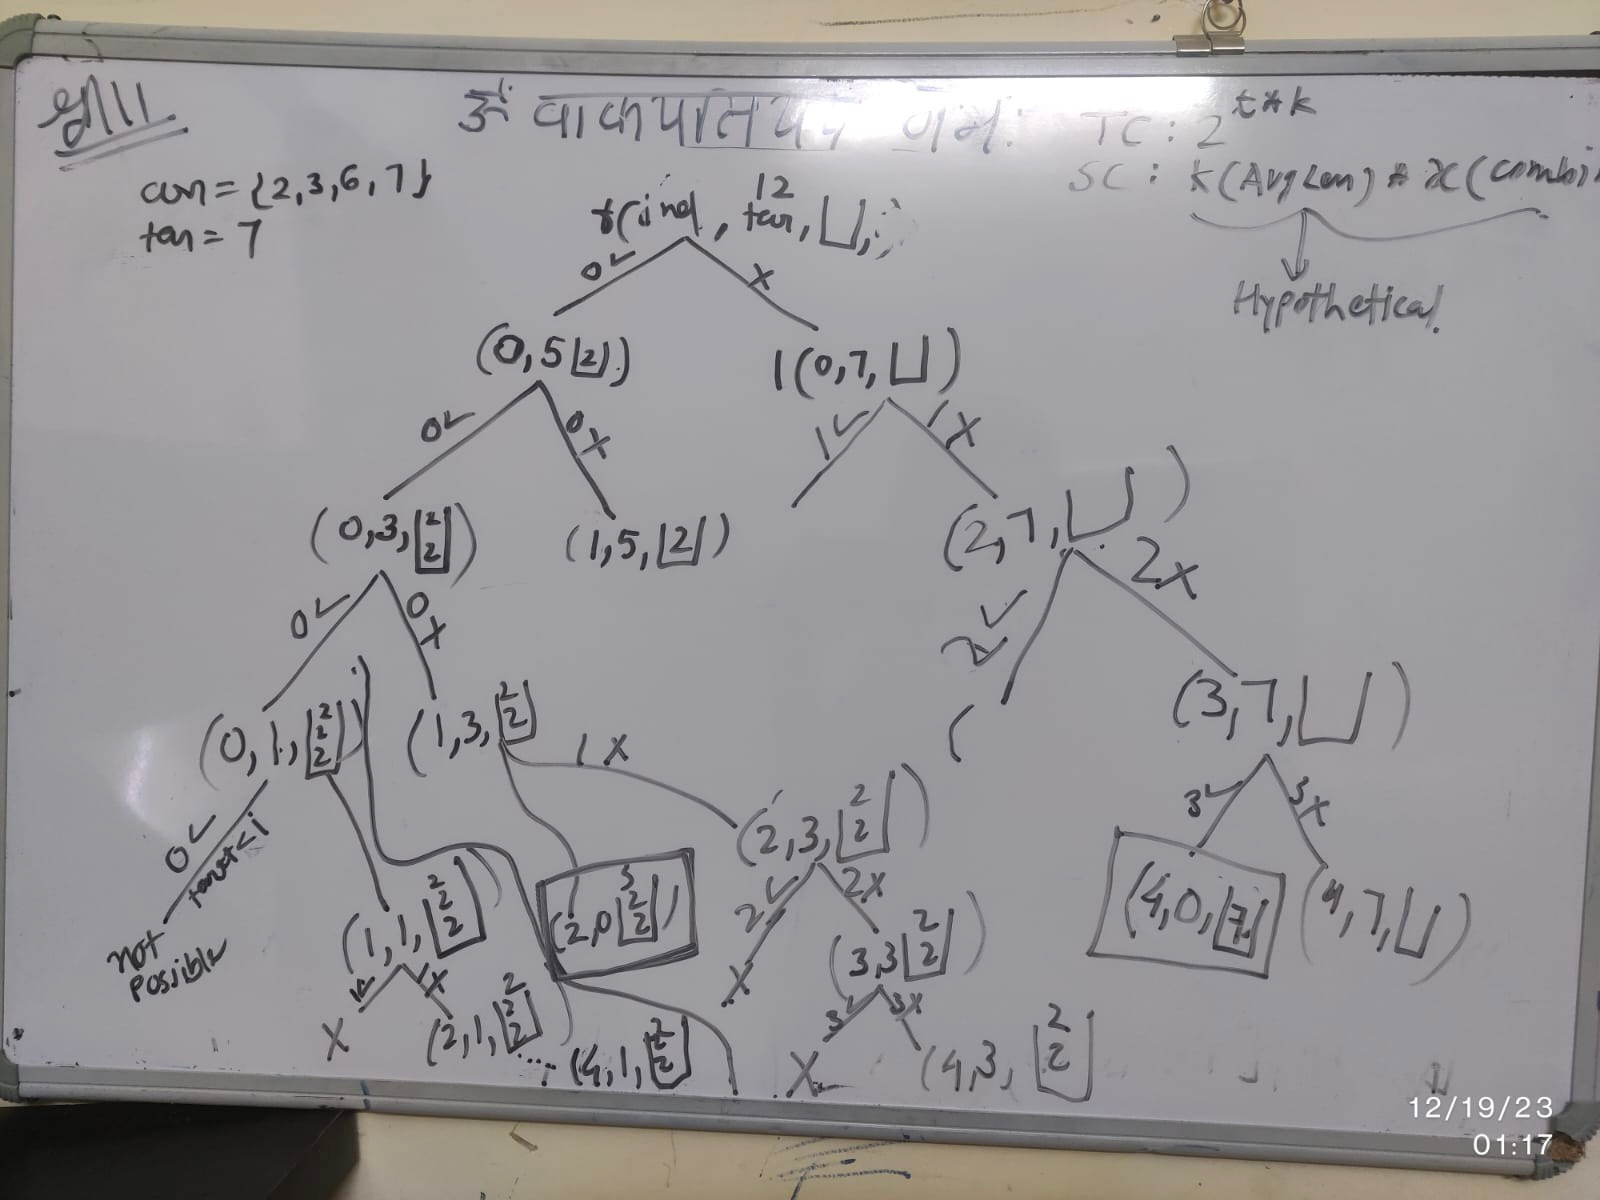 श्री॥
ॐ वाकपतियय नमः
TC: 2^t*k
SC: k(Avg Len) * x(combi
Hypothetical.
arr = {2,3,6,7}
tar = 7
12
f(ind, tar, ⎵,
0✓ x
(0,5[2]) 1(0,7,⎵)
0✓ 0x 1✓ 1x
(0,3,[2 2]) (1,5,[2]) (2,7,⎵)
0✓ 0x 2✓ 2x
(0,1,[2 2 2]) (1,3,[2 2]) ( (3,7,⎵)
0✓ target<i 1x 3✓ 3x
not possible
(2,3,[2 2])
(1,1,[2 2 2]) (2,0[3 2 2]) 2✓ 2x (4,0,[7]) (4,7,⎵)
1✓ x x (3,3[2 2])
x (2,1,[2 2 2]) .... (4,1,[2 2 2]) 3✓ 3x
x (4,3,[2 2])
12/19/23
01:17